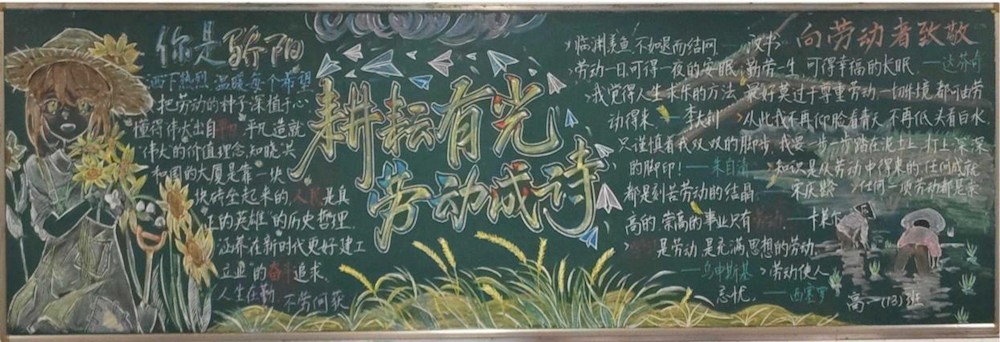 你是骄阳
洒下热烈 温暖每个希望
把劳动的种子深植于心
懂得伟大出自平凡 平凡造就
伟大的价值理念,知晓共
和国的大厦是靠一块
块砖垒起来的,人民是真
正的英雄的历史哲理
涵养在新时代更好建工
立业的奋斗追求
人生在勤 不劳何获
耕耘有光
劳动成诗
向劳动者致敬
临渊羡鱼 不如退而结网 ——汉书
劳动一日,可得一夜的安眠,勤劳一生 可得幸福的长眠 ——达芬奇
我觉得人生求乐的方法 最好莫过于尊重劳动 一切乐境 都可由劳
动得来 ——李大钊
从此我不再仰脸看青天,不再低头看白水
只谨慎着我双双的脚步 我要一步一步踏在泥土上 打上深深
的脚印! ——朱自清
知识是从劳动中得来的,任何成就
都是刻苦劳动的结晶 宋庆龄
任何一项劳动都是崇
高的 崇高的事业只有劳动
是劳动 是充满思想的劳动
——乌申斯基
劳动使人
忘忧 ——西塞罗
高一(13)班